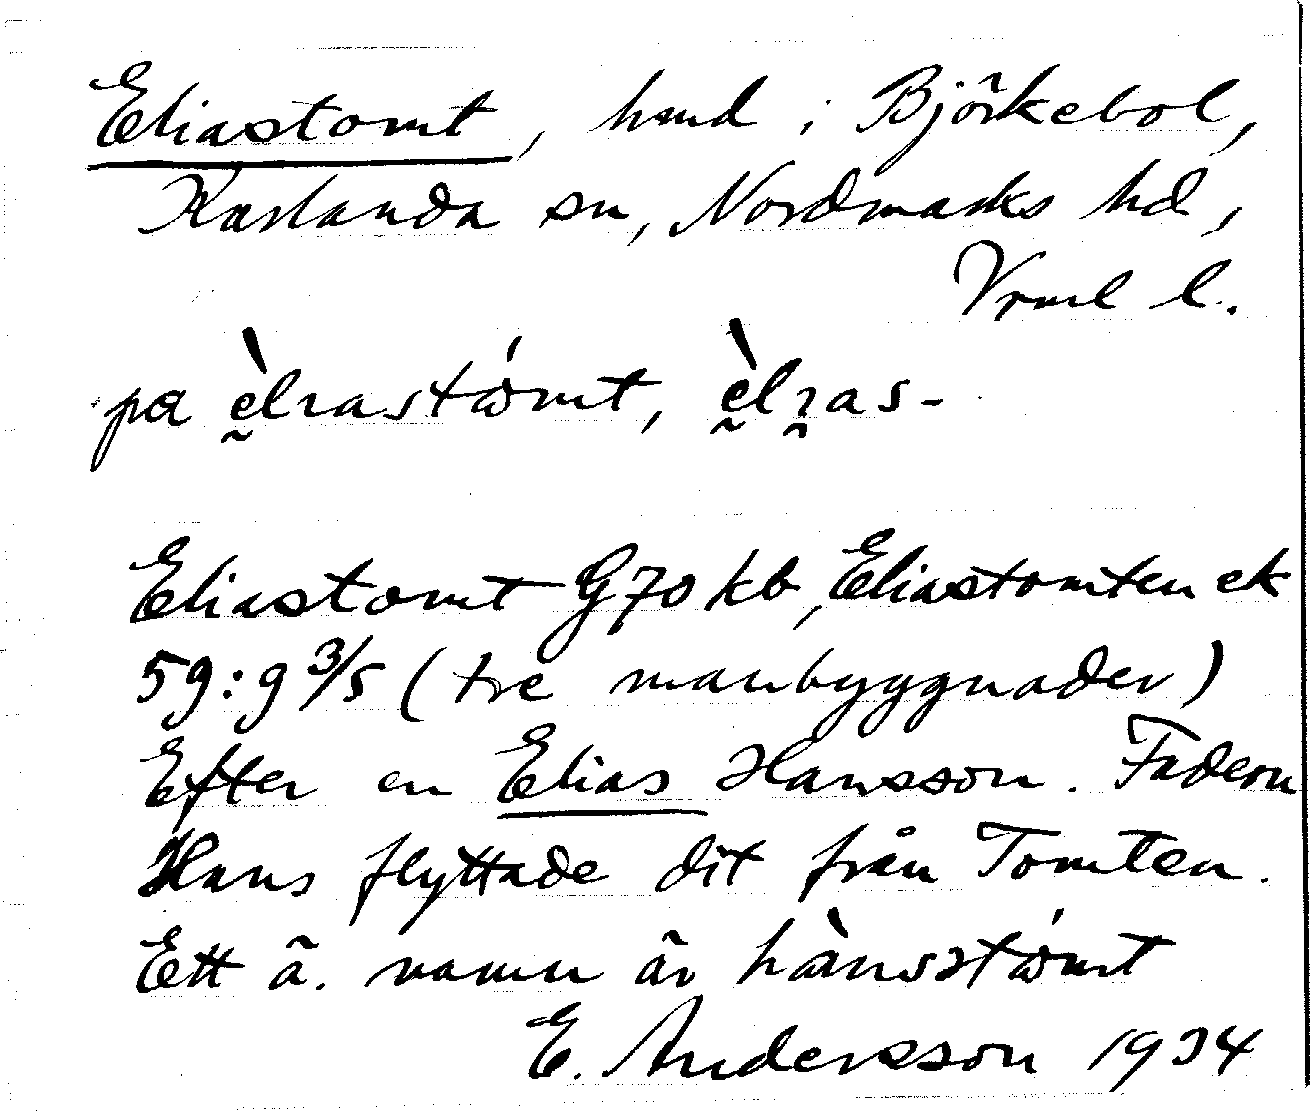 Eliastomt, hmd i Björkebol,
Karlanda sn, Nordmarks hd,
Vrml l.
på èlɿastɷ́mt, èlɿas-
Eliastomt G70 kb, Eliastomten ek
59:9 3/5 (tre manbyggnader)
Efter en Elias Hansson. Fadern
Hans flyttade dit från Tomten.
Ett ä. namn är hànsstɷ́mt
E. Andersson 1934